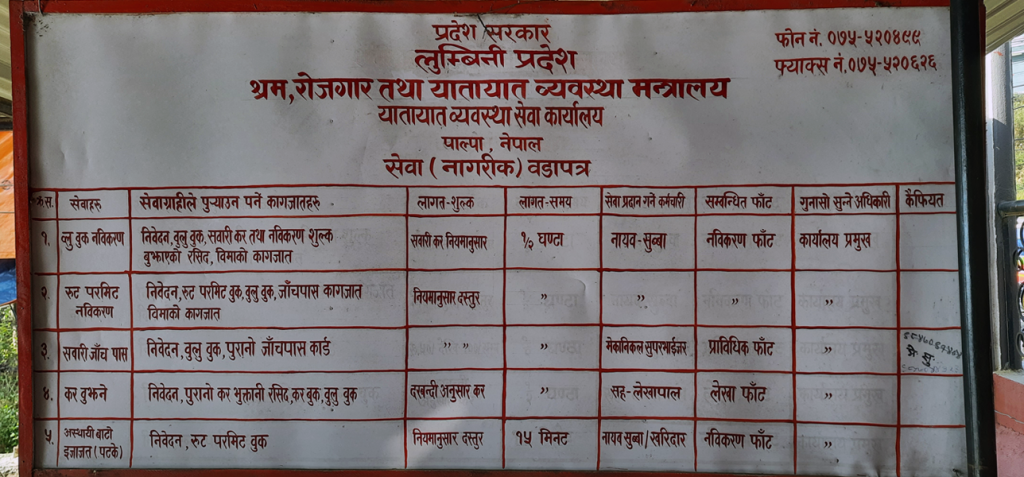 प्रदेश सरकार
लुम्बिनी प्रदेश
श्रम, रोजगार तथा यातायात व्यवस्था मन्त्रालय
यातायात व्यवस्था सेवा कार्यालय
पाल्पा, नेपाल
सेवा (नागरीक) वडापत्र
फोन नं. ०७५-५२०४९९
फ्याक्स नं. ०७५-५२०६२६
क्र.स. सेवाहरु सेवाग्राहीले पुर्‍याउन पर्ने कागजातहरु लागत-शुल्क लागत-समय सेवा प्रदान गर्ने कर्मचारी सम्बन्धित फाँट गुनासो सुन्ने अधिकारी कैफियत
१. ब्लु वुक नविकरण निवेदन, वुलु वुक, सवारी कर तथा नविकरण शुल्क सवारी कर नियमानुसार १/२ घण्टा नायव-सुब्बा नविकरण फाँट कार्यालय प्रमुख
वुझाएको रसिद, विमाको कागजात
२. रुट परमिट निवेदन, रुट परमिट वुक, वुलु वुक, जाँचपास कागजात नियमानुसार दस्तुर " " " "
नविकरण विमाको कागजात
३. सवारी जाँच पास निवेदन, वुलु वुक, पुरानो जाँचपास कार्ड " " " मेकानिकल सुपरभाईजर प्राविधिक फाँट "
४. कर वुझने निवेदन, पुरानो कर भुक्तानी रसिद, कर वुक, वुलु वुक दरबन्दी अनुसार कर " सह-लेखापाल लेखा फाँट "
५. अस्थायी बाटो निवेदन, रुट परमिट वुक नियमानुसार दस्तुर १५ मिनट नायव सुब्बा/खरिदार नविकरण फाँट "
इजाजत (पटके)